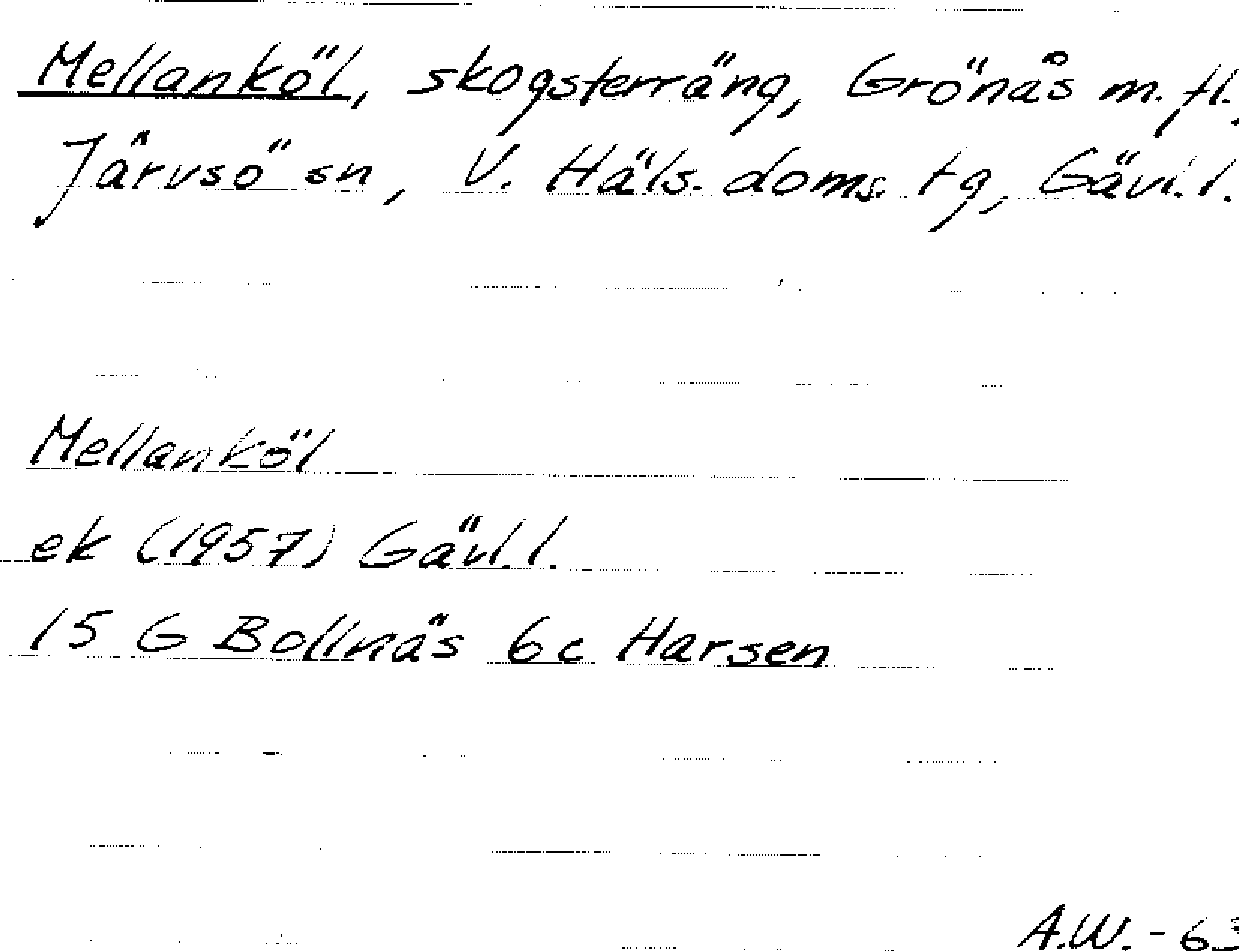 Mellanköl, skogsterräng, Grönås m. fl.,
Järvsö sn, V. Häls. doms. tg, Gävl. l.
Mellanköl
ek (1957) Gävl. l.
15 G Bollnäs 6c Harsen
A.W. - 63